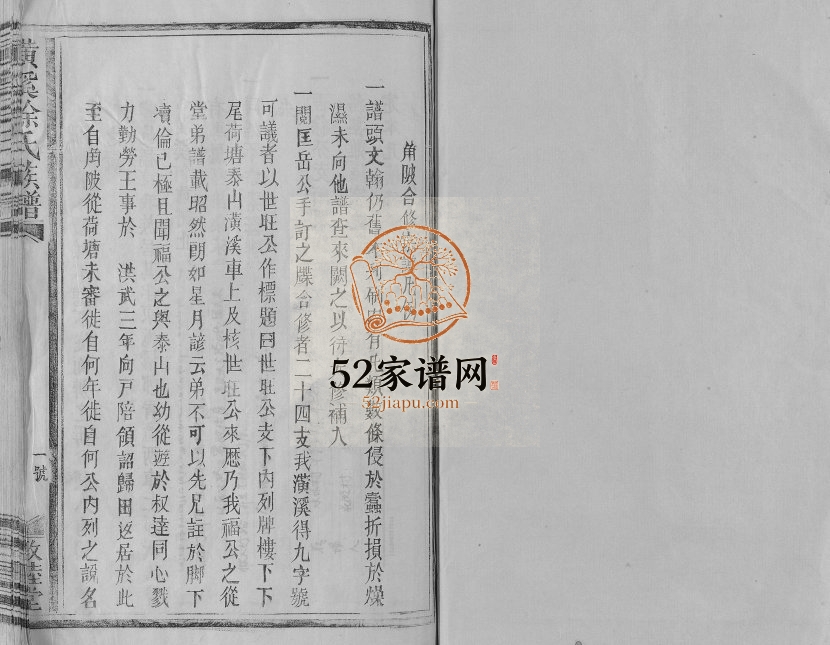 角陂合修
一譜頭文翰仍舊不列 有 煩數條侵於蠹折損於燥
濕未向他譜查來闕之以待 修補入
一閱匡岳公手訂之牒合修者二十四支我潢溪得九字號
可議者以世旺公作標題曰世旺公支下內列牌樓下下
尾荷塘泰山潢溪車上及核世旺公來歷乃我福公之從
堂弟譜載昭然朗如星月諺云弟不可以先兄註於脚下
瀆倫已極且聞福公之與泰山也幼從遊於叔達同心戮
力勤勞王事於 洪武三年向戶陪領詔歸田返居於此
至自角陂從荷塘未審徙自何年徙自何公內列之說名
潢溪徐氏族譜
一號
敦睦堂
52家谱网
52jiapu.com